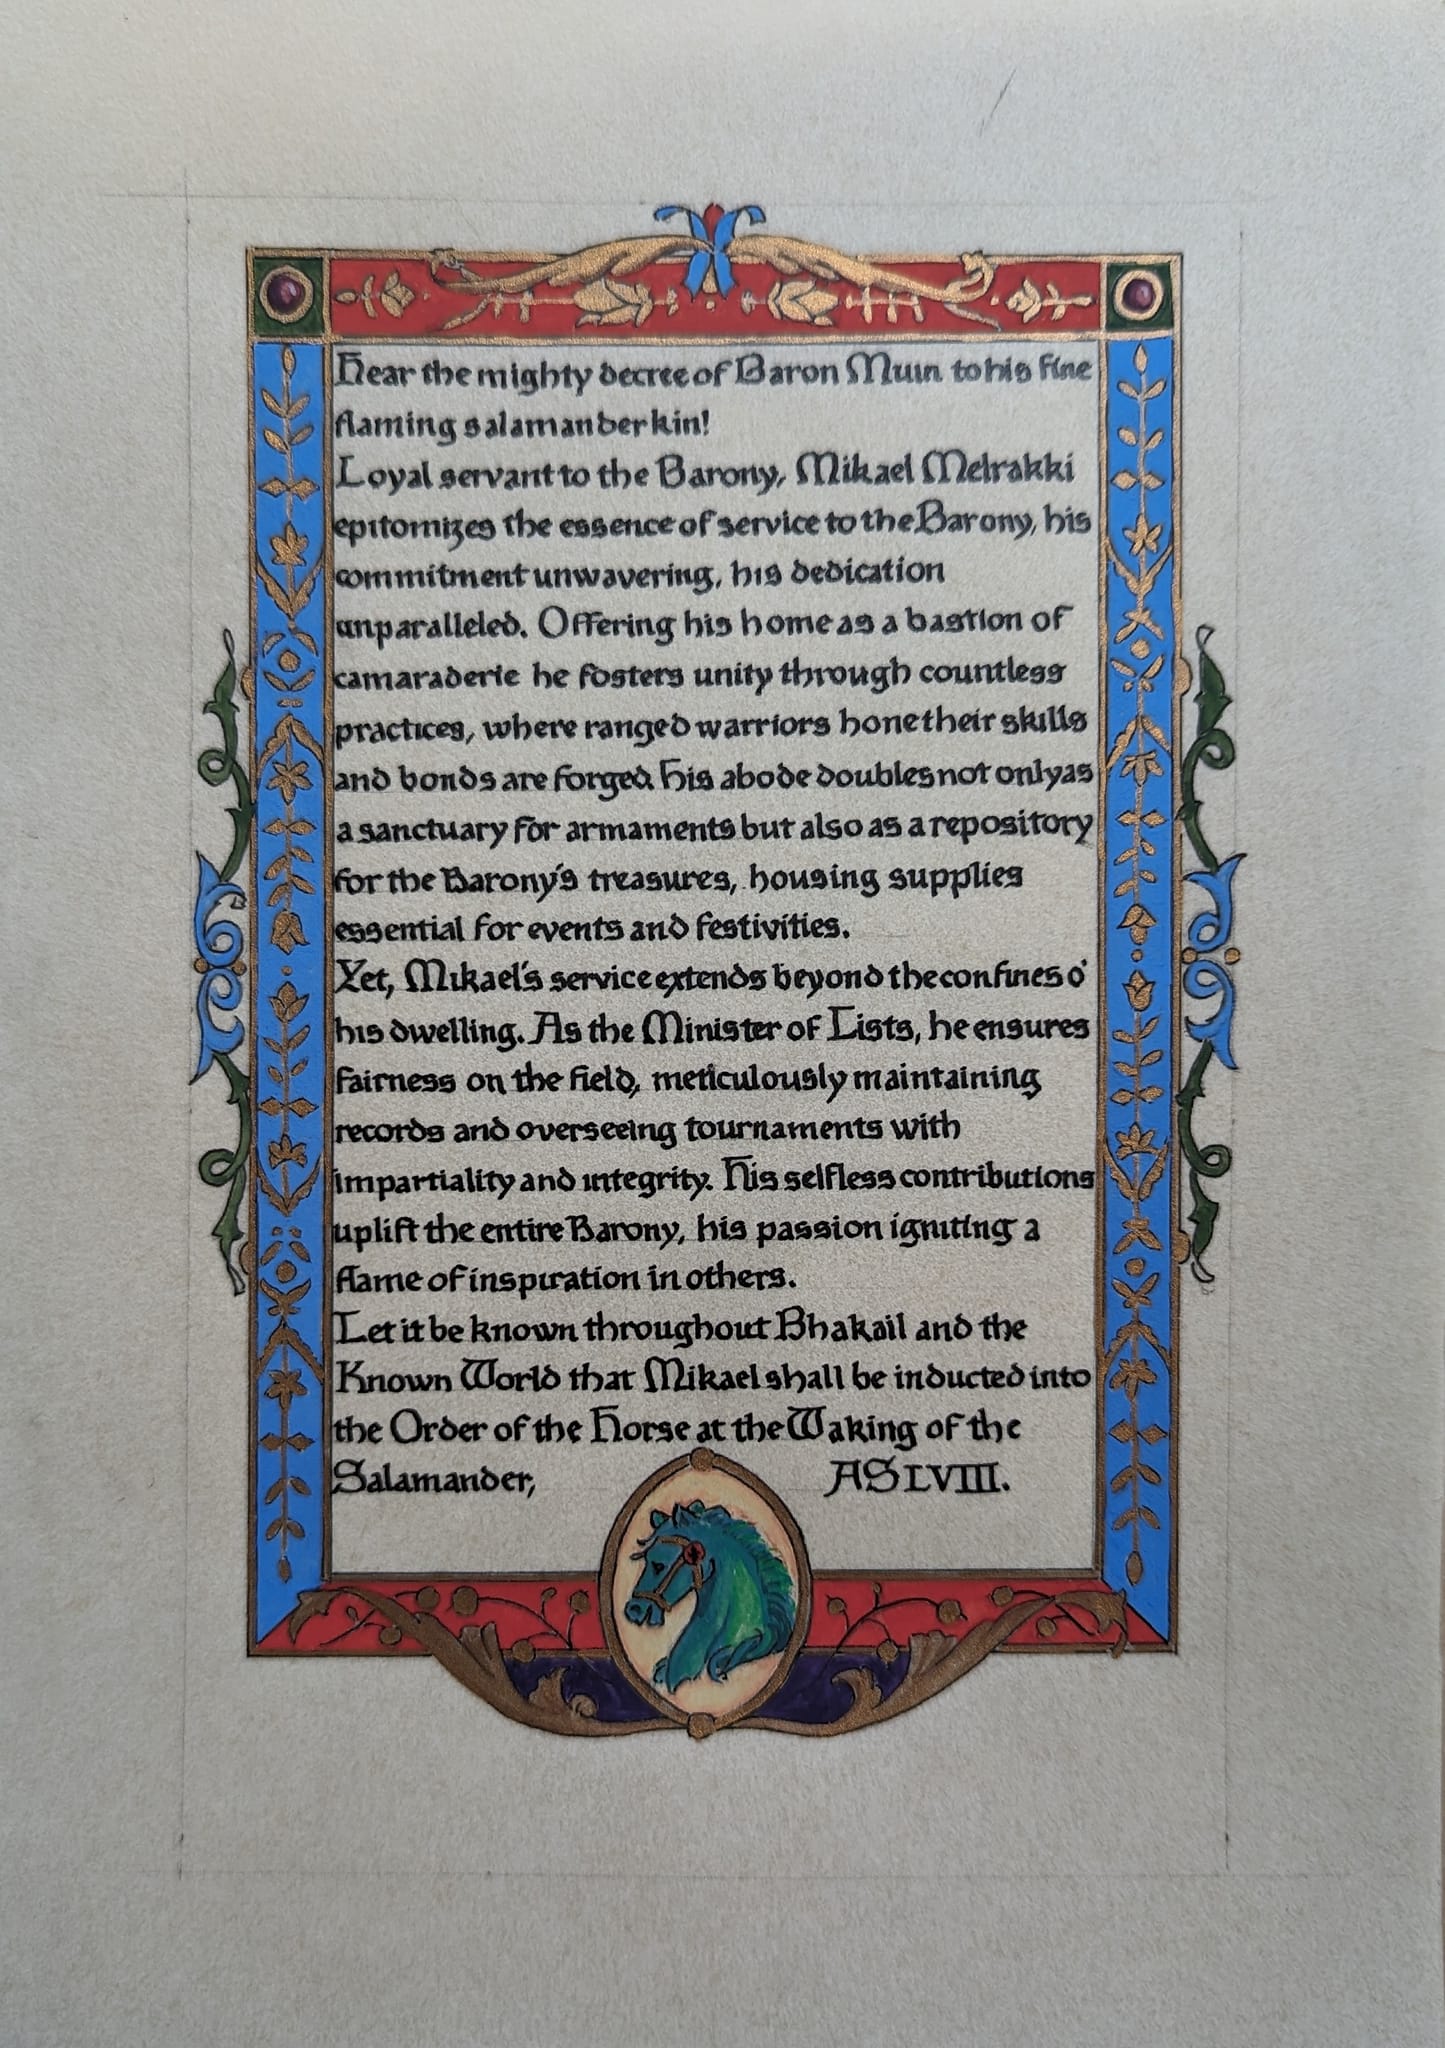 Hear the mighty decree of Baron Muin to his fine
flaming salamander kin!
Loyal servant to the Barony, Mikael Melrakki
epitomizes the essence of service to the Barony, his
commitment unwavering, his dedication
unparalleled. Offering his home as a bastion of
camaraderie he fosters unity through countless
practices, where ranged warriors hone their skills
and bonds are forged. His abode doubles not only as
a sanctuary for armaments but also as a repository
for the Barony's treasures, housing supplies
essential for events and festivities.
Yet, Mikael's service extends beyond the confines o'
his dwelling. As the Minister of Lists, he ensures
fairness on the field, meticulously maintaining
records and overseeing tournaments with
impartiality and integrity. His selfless contributions
uplift the entire Barony, his passion igniting a
flame of inspiration in others.
Let it be known throughout Bhakail and the
Known World that Mikael shall be inducted into
the Order of the Horse at the Waking of the
Salamander, AS LVIII.